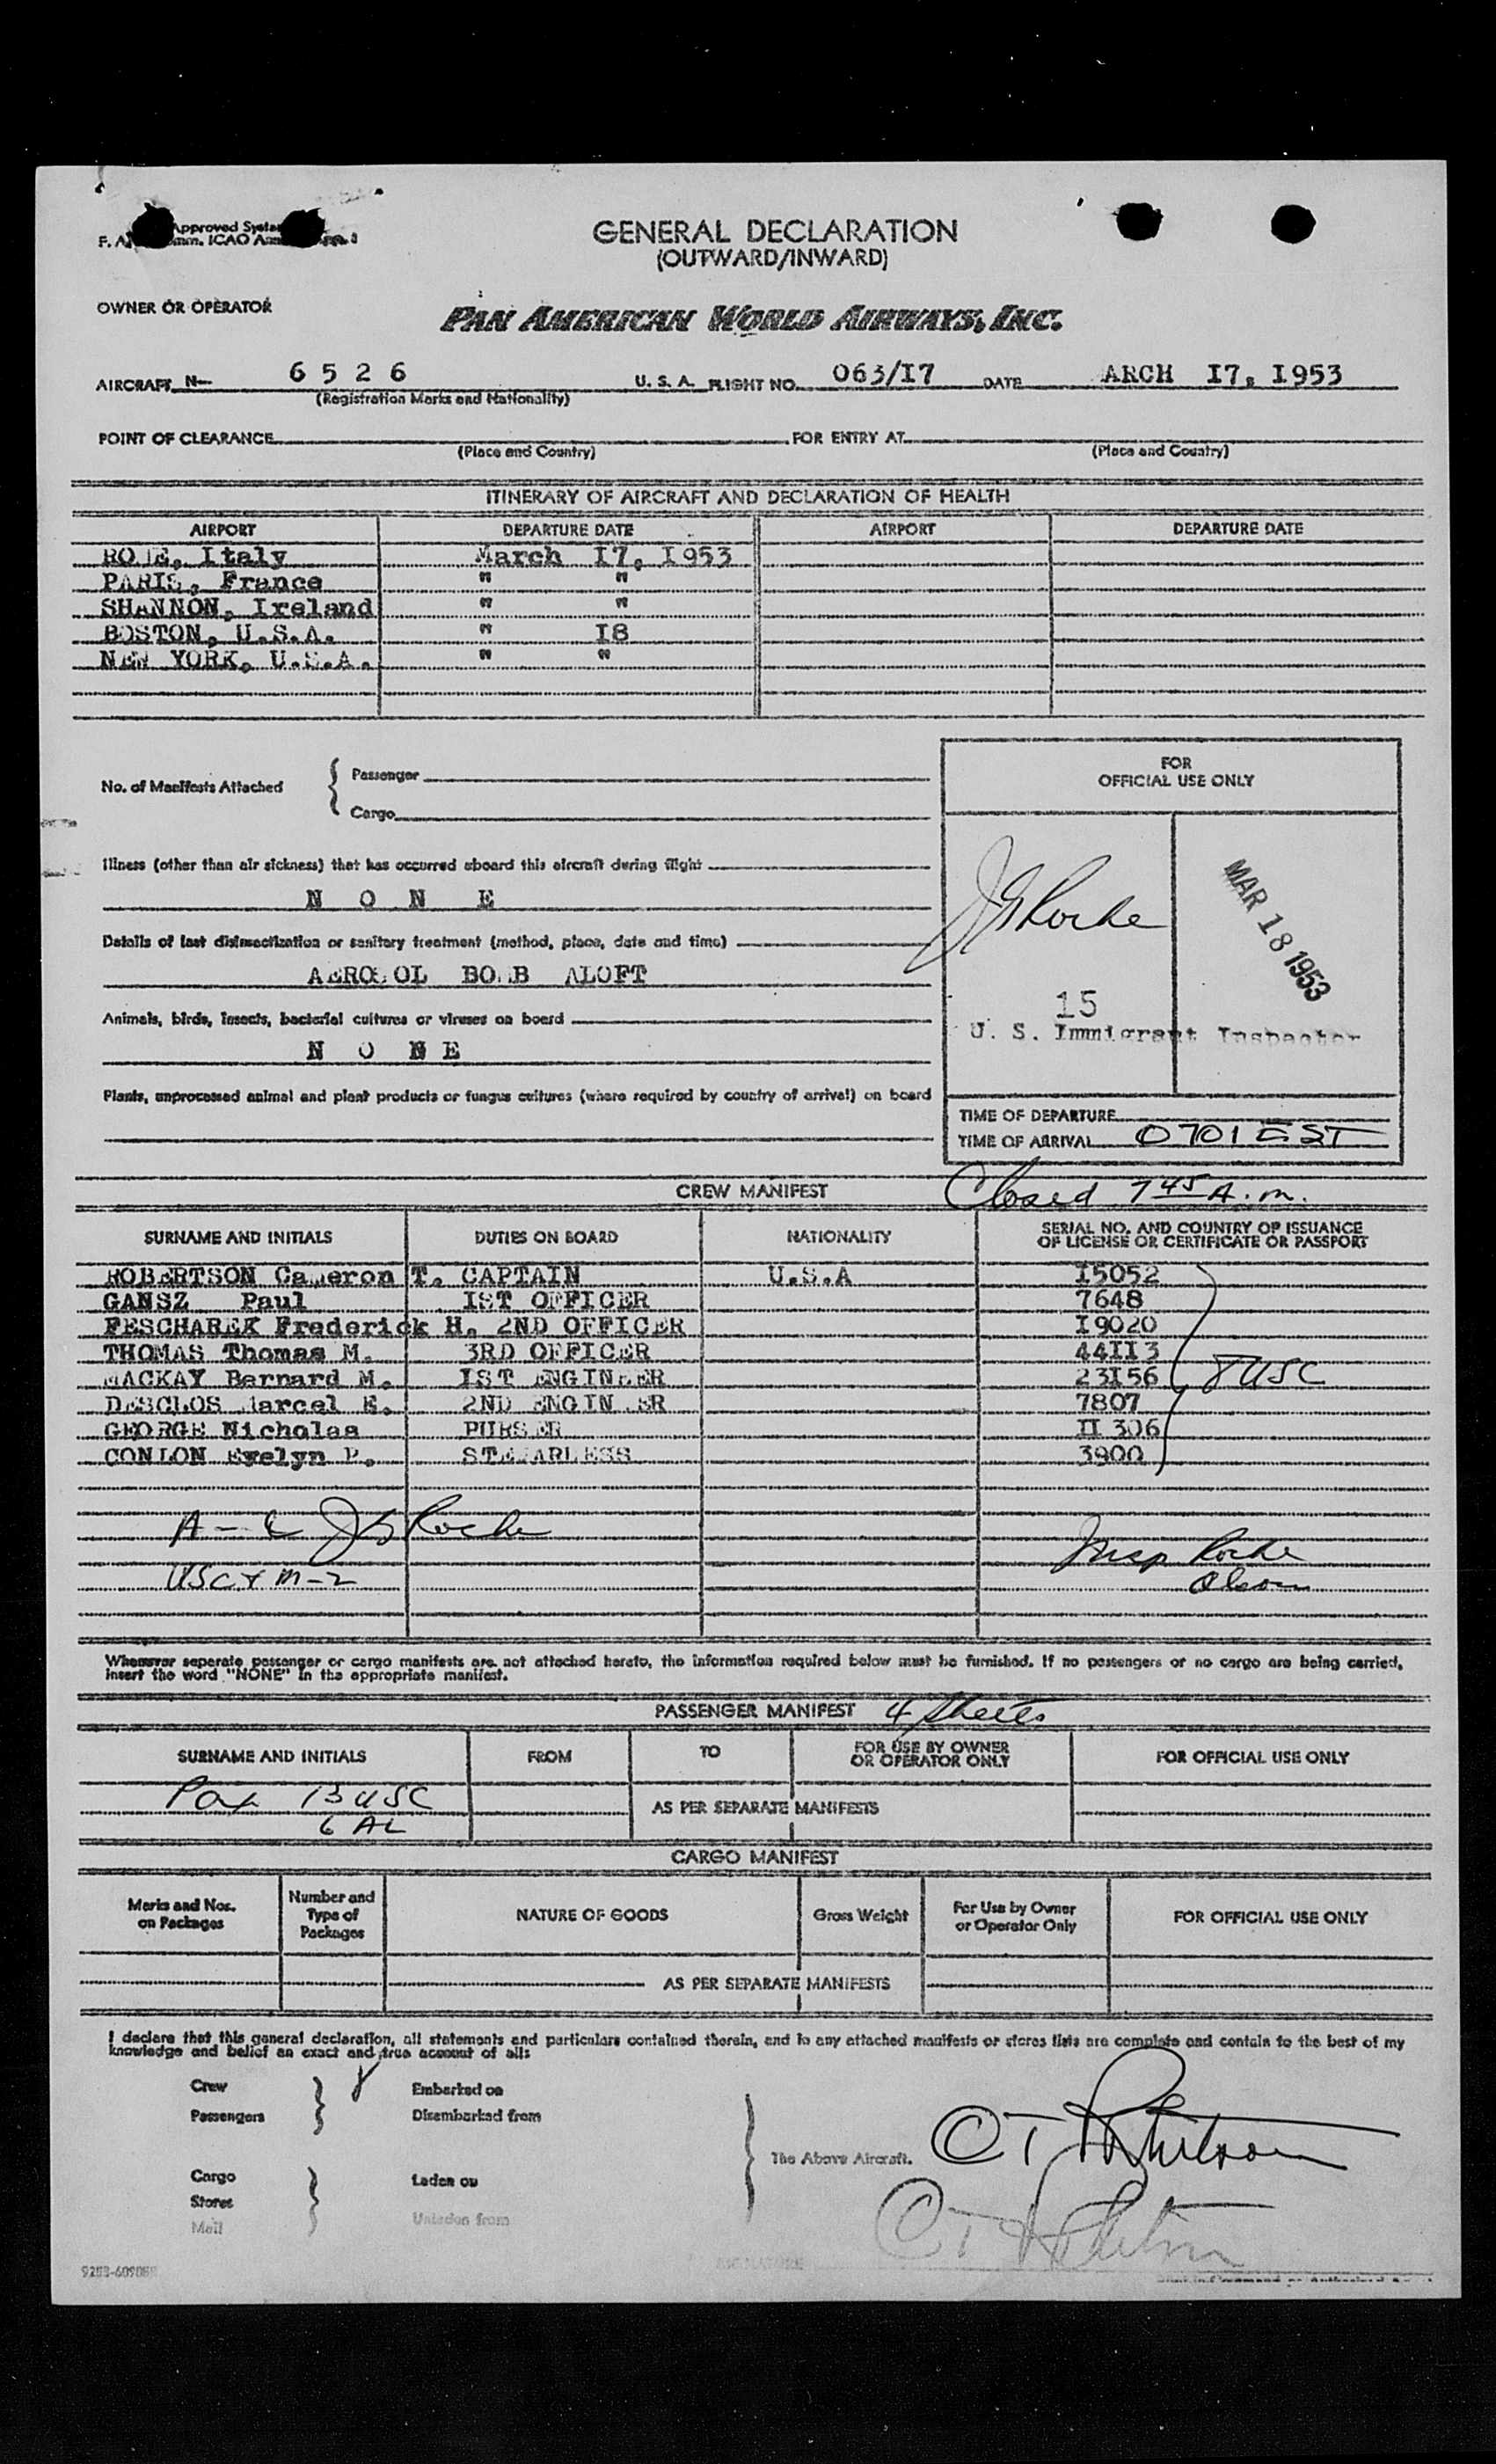 GENERAL DECLARATION
(OUTWARD/INWARD)
OWNER OR OPERATOR
PAN AMERICAN WORLD AIRWAYS, INC.
AIRCRAFT N- 6 5 2 6 U. S. A. FLIGHT NO. 063/I7 DATE ARCH I7, I953
(Registration Marks and Nationality)
POINT OF CLEARANCE FOR ENTRY AT
(Place and Country) (Place and Country)
ITINERARY OF AIRCRAFT AND DECLARATION OF HEALTH
AIRPORT DEPARTURE DATE AIRPORT DEPARTURE DATE
ROME, Italy March I7, I953
PARIS, France " "
SHANNON, Ireland " "
BOSTON, U.S.A. " I8
NEW YORK, U.S.A. " "
No. of Manifests Attached { Passenger
Cargo
FOR
OFFICIAL USE ONLY
Illness (other than air sickness) that has occurred aboard this aircraft during flight
N O N E
Details of last disinsectization or sanitary treatment (method, place, date and time)
AEROSOL BOMB ALOFT
Animals, birds, insects, bacterial cultures or viruses on board
N O N E
Plants, unprocessed animal and plant products or fungus cultures (where required by country of arrival) on board
JGRoche
MAR 18 1953
15
U. S. Immigrant Inspector
TIME OF DEPARTURE
TIME OF ARRIVAL 0701 EST
CREW MANIFEST Closed 7 45 A.m.
SURNAME AND INITIALS DUTIES ON BOARD NATIONALITY SERIAL NO. AND COUNTRY OF ISSUANCE
OF LICENSE OR CERTIFICATE OR PASSPORT
ROBERTSON Cameron T. CAPTAIN U.S.A I5052
GANSZ Paul IST OFFICER 7648
FESCHAREK Frederick H. 2ND OFFICER I9020
THOMAS Thomas M. 3RD OFFICER 44II3
MACKAY Bernard M. IST ENGINEER 23I56 8 USC
DESCLOS Marcel E. 2ND ENGINEER 7807
GEORGE Nicholas PURSER II306
CONLON Evelyn P. STEWARDESS 3900
JG Roche
Insp Roche
USC + m-2 Olson
Whenever separate passenger or cargo manifests are not attached hereto, the information required below must be furnished. If no passengers or no cargo are being carried,
insert the word "NONE" in the appropriate manifest.
PASSENGER MANIFEST 4 Sheets
SURNAME AND INITIALS FROM TO FOR USE BY OWNER
OR OPERATOR ONLY FOR OFFICIAL USE ONLY
Pax 13 USC
AS PER SEPARATE MANIFESTS
6 AL
CARGO MANIFEST
Marks and Nos.
on Packages Number and
Type of
Packages NATURE OF GOODS Gross Weight For Use by Owner
or Operator Only FOR OFFICIAL USE ONLY
AS PER SEPARATE MANIFESTS
I declare that this general declaration, all statements and particulars contained therein, and in any attached manifests or stores lists are complete and contain to the best of my
knowledge and belief an exact and true account of all:
Crew 8 Embarked on
Passengers Disembarked from
The Above Aircraft. CT Robertson
Cargo Laden on
Stores
Mail Unladen from
CT Robertson
SIGNATURE